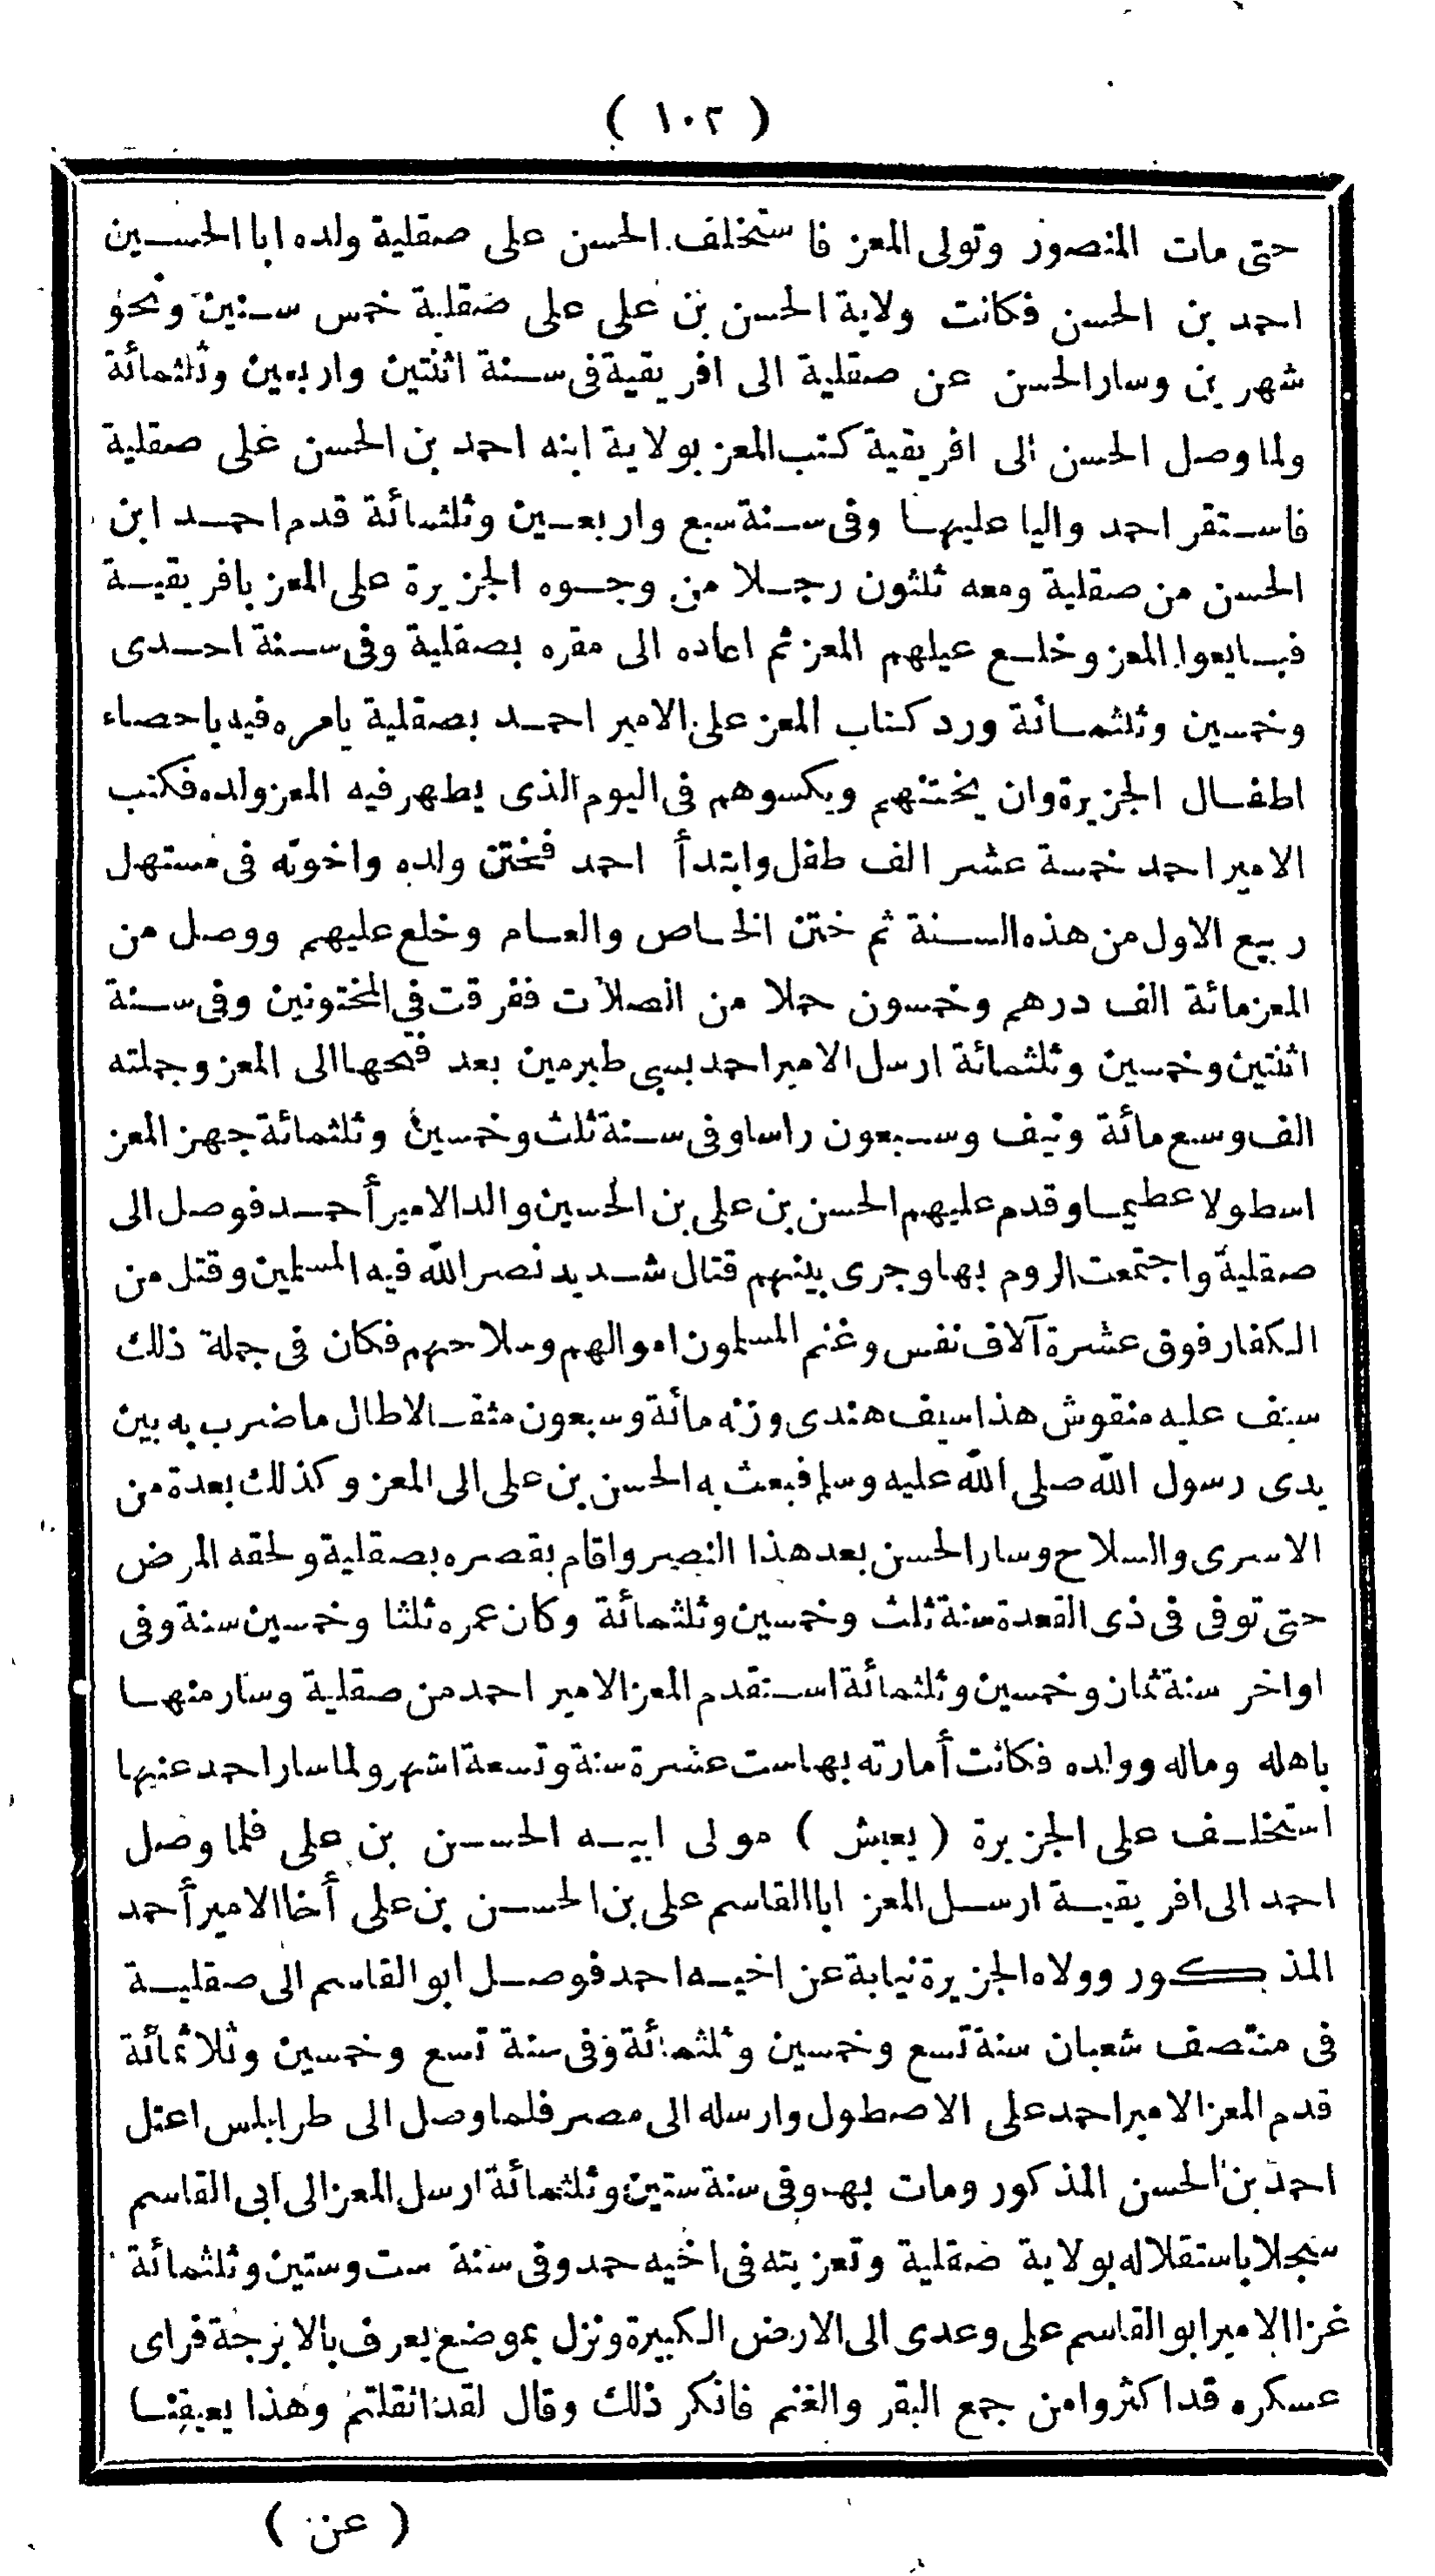 ( ١٠٢ )
حتى مات المنصور وتولى المعز فاستخلف الحسن على صقلية ولده ابا الحسين
احمد بن الحسن فكانت ولاية الحسن بن على على صقلية خمس سنين ونحو
شهرين وسار الحسن عن صقلية الى افريقية فى سنة اثنتين واربعين وثلثمائة
ولما وصل الحسن الى افريقية كتب المعز بولاية ابنه احمد بن الحسن على صقلية
فاستقر احمد واليا عليها وفى سنة سبع واربعين وثلثمائة قدم احمد ابن
الحسن من صقلية ومعه ثلثون رجلا من وجوه الجزيرة على المعز بافريقية
فبايعوا المعز وخلع عيلهم المعز ثم اعاده الى مقره بصقلية وفى سنة احدى
وخمسين وثلثمائة ورد كتاب المعز على الامير احمد بصقلية يامره فيه باحصاء
اطفال الجزيرة وان يختنهم ويكسوهم فى اليوم الذى يطهر فيه المعز ولده فكتب
الامير احمد خمسة عشر الف طفل وابتدأ احمد فختن ولده واخوته فى مستهل
ربيع الاول من هذه السنة ثم ختن الخاص والعام وخلع عليهم ووصل من
المعز مائة الف درهم وخمسون حملا من الصلات ففرقت فى المختونين وفى سنة
اثنتين وخمسين وثلثمائة ارسل الامير احمد بسبى طبرمين بعد فتحها الى المعز وجملته
الف وسبع مائة ونيف وسبعون راسا وفى سنة ثلث وخمسين وثلثمائة جهز المعز
اسطولا عظيما وقدم عليهم الحسن بن على بن الحسين والد الامير أحمد فوصل الى
صقلية واجتمعت الروم بها وجرى بينهم قتال شديد نصر الله فيه المسلمين وقتل من
الكفار فوق عشرة آلاف نفس وغنم المسلمون اموالهم وسلاحهم فكان فى جملة ذلك
سيف عليه منقوش هذا سيف هندى وزنه مائة وسبعون مثقالا طال ما ضرب به بين
يدى رسول الله صلى الله عليه وسلم فبعث به الحسن بن على الى المعز وكذلك بعدة من
الاسرى والسلاح وسار الحسن بعد هذا النصر واقام بقصره بصقلية ولحقه المرض
حتى توفى فى ذى القعدة سنة ثلث وخمسين وثلثمائة وكان عمره ثلثا وخمسين سنة وفى
اواخر سنة ثمان وخمسين وثلثمائة استقدم المعز الامير احمد من صقلية وسار منها
باهله وماله وولده فكانت أمارته بها ست عشرة سنة وتسعة اشهر ولما سار احمد عنها
استخلف على الجزيرة ( يعيش ) مولى ابيه الحسن بن على فلما وصل
احمد الى افريقية ارسل المعز ابا القاسم على بن الحسن بن على أخا الامير أحمد
المذكور وولاه الجزيرة نيابة عن اخيه احمد فوصل ابو القاسم الى صقلية
فى منتصف شعبان سنة تسع وخمسين وثلثمائة وفى سنة تسع وخمسين وثلاثمائة
قدم المعز الامير احمد على الاصطول وارسله الى مصر فلما وصل الى طرابلس اعتل
احمد بن الحسن المذكور ومات بها وفى سنة ستين وثلثمائة ارسل المعز الى ابى القاسم
سجلا باستقلاله بولاية صقلية وتعزيته فى اخيه حمد وفى سنة ست وستين وثلثمائة
غزا الامير ابو القاسم على وعدى الى الارض الكبيرة ونزل بموضع يعرف بالابرجة فراى
عسكره قد اكثروا من جمع البقر والغنم فانكر ذلك وقال لقد اثقلتم وهذا يعيقنا
( عن )